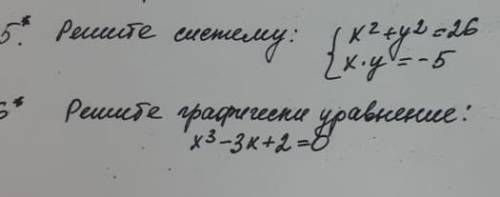 5.* Решите систему: { x²+y²=26
x·y=-5
6* Решите графически уравнение:
x³-3x+2=0